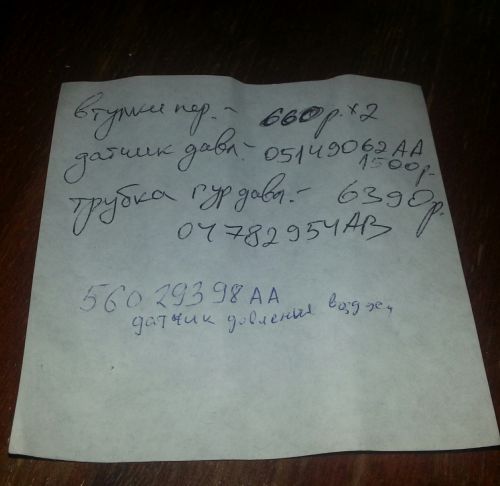 втулки пер. - 660р. x2
датчик давл. - 05149062AA
1500р.
трубка гур давл. - 6390р.
04782954AB
56029398AA
датчик давления воздуха